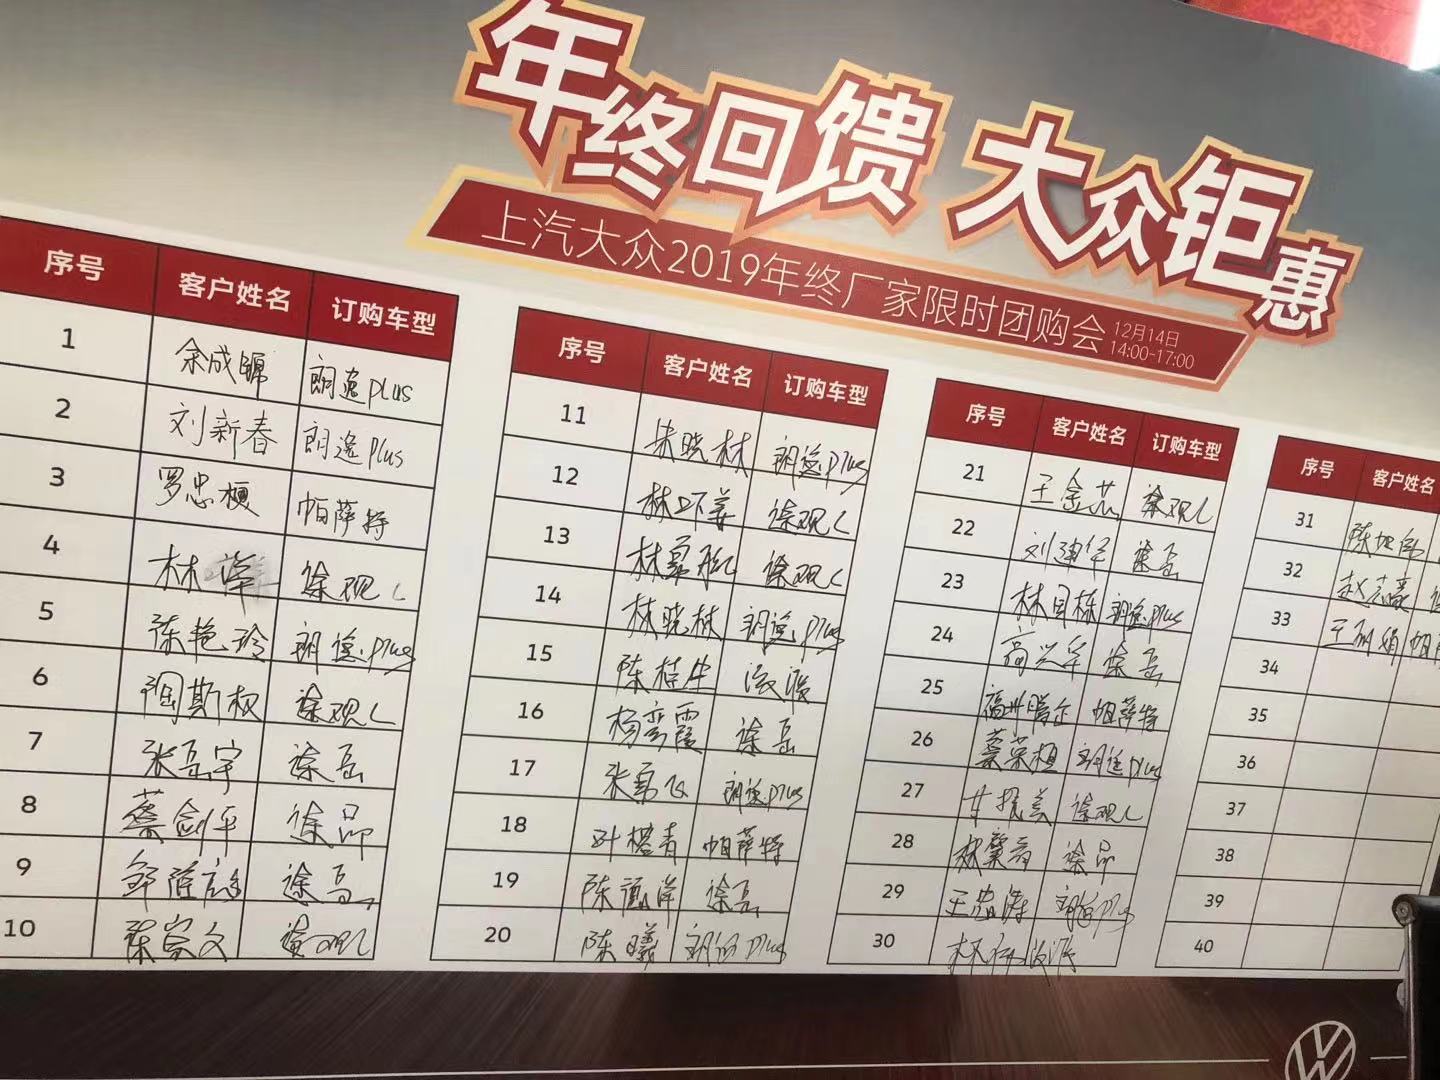 年终回馈 大众钜惠
上汽大众2019年终厂家限时团购会 12月14日
14:00-17:00
序号 客户姓名 订购车型
1 余成 朗逸plus
2 刘新春 朗逸plus
3 罗忠梗 帕萨特
4 林 途观L
5 陈艳玲 朗逸plus
6 陶斯权 途观L
7 张岳宇 途岳
8 蔡剑平 途昂
9 途岳
10 陈家文 途观L
序号 客户姓名 订购车型
11 朱晓林 朗逸plus
12 林 途观L
13 林 途观L
14 林晓林 朗逸plus
15 陈桂生 凌渡
16 杨霞 途岳
17 张勇飞 朗逸plus
18 叶榕青 帕萨特
19 陈 途岳
20 陈曦 朗逸plus
序号 客户姓名 订购车型
21 王金芯 途观L
22 刘迪华 途岳
23 林国栋 朗逸plus
24 高兴华 途岳
25 福州 帕萨特
26 蔡荣植 朗逸plus
27 甘振美 途观L
28 林 途昂
29 王 朗逸plus
30 林 凌渡
序号 客户姓名
31 陈旭
32 赵
33 王 帕
34
35
36
37
38
39
40